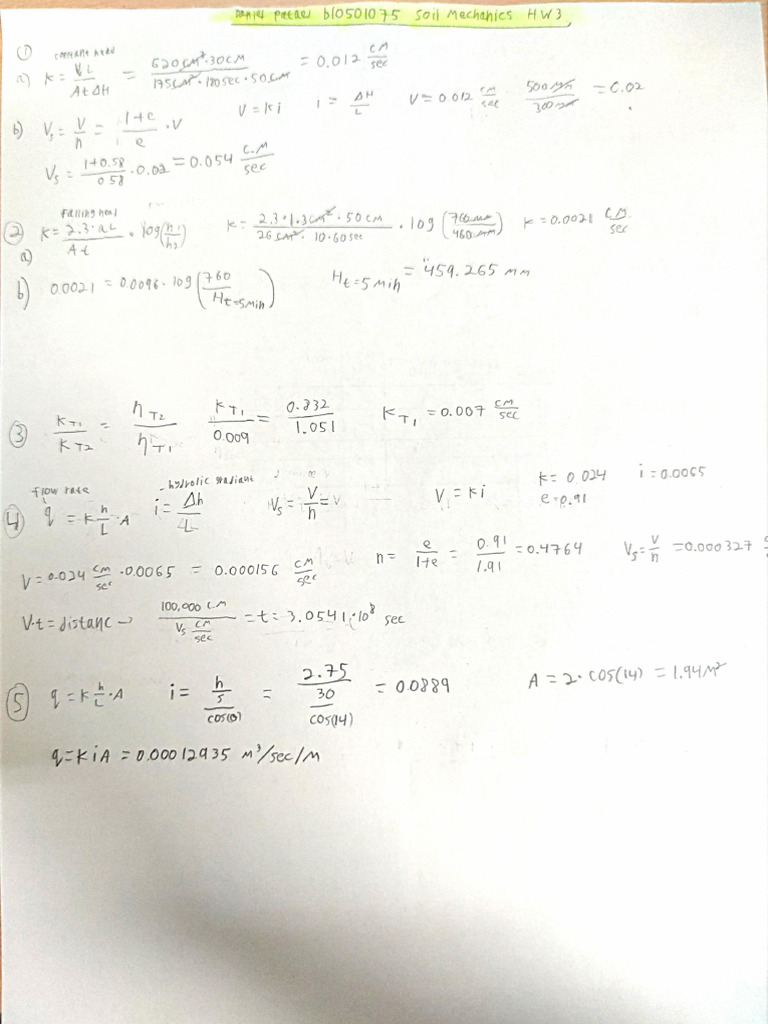 Daniel b10501075 Soil Mechanics HW3
① constant head
a) K = VL / AtΔH = 620 cm³·30cm / 175cm²·180sec·50cm = 0.012 cm/sec
b) Vs = V/n = 1+e/e · V V = ki i = ΔH/L V = 0.012 cm/sec · 500mm/300mm = 0.02
Vs = 1+0.58/0.58 · 0.02 = 0.054 C.M/sec
② Falling head
a) K = 2.3·aL/At · log(h1/h2) K = 2.3·1.3cm²·50cm / 26cm²·10·60sec · log(760mm/460mm) K = 0.0021 CM/sec
b) 0.0021 = 0.0096·log(760/Ht=5min) Ht=5min = 459.265 mm
③ KT1/KT2 = ηT2/ηT1 KT1/0.009 = 0.832/1.051 KT1 = 0.007 CM/sec
flow rate hydrolic gradiant
④ q = K h/L ·A i = Δh/L Vs = V/n V = Ki K = 0.024 i = 0.0065
e = 0.91
V = 0.024 cm/sec · 0.0065 = 0.000156 CM/sec n = e/1+e = 0.91/1.91 = 0.4764 Vs = V/n = 0.000327
V·t = distanc → 100,000 C.M / Vs CM/sec = t = 3.0541·10⁸ sec
⑤ q = K h/L ·A i = h / S/cos(θ) = 2.75 / 30/cos(14) = 0.0889 A = 2·cos(14) = 1.94 M²
q = KiA = 0.00012935 M³/sec/M